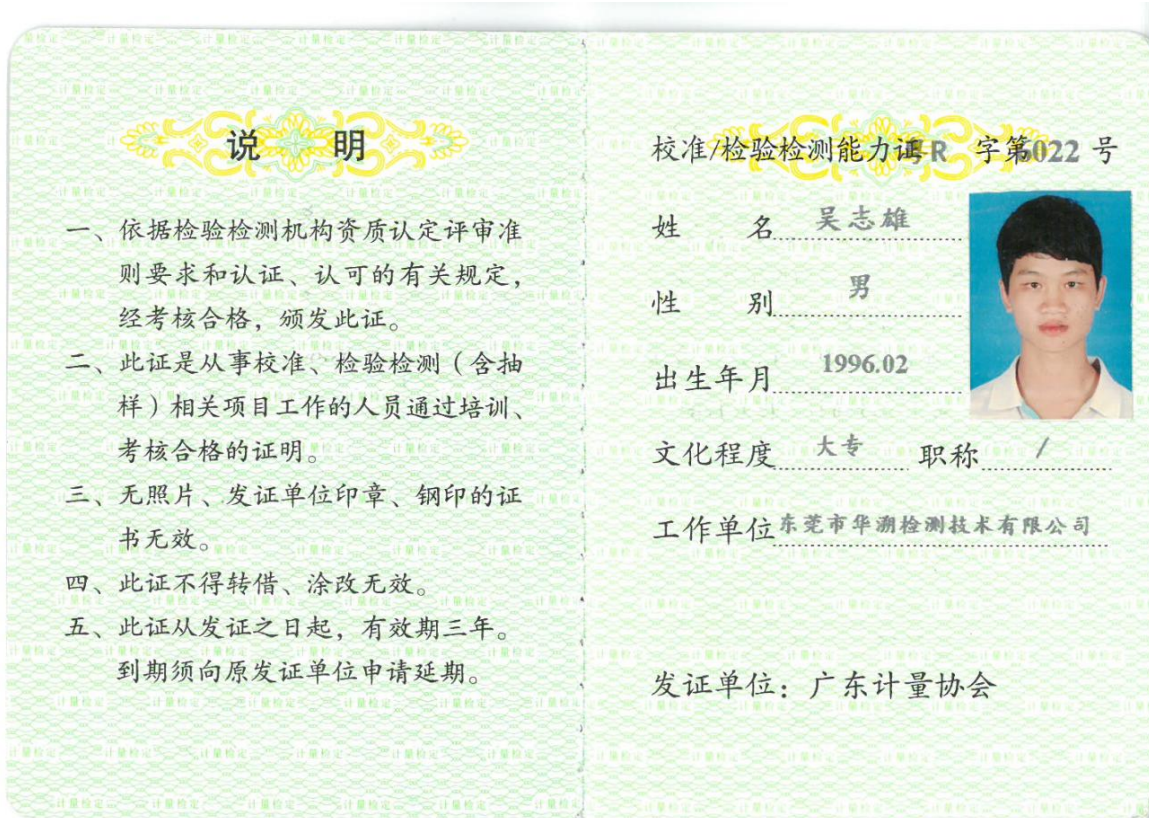 说 明
一、依据检验检测机构资质认定评审准
则要求和认证、认可的有关规定，
经考核合格，颁发此证。
二、此证是从事校准、检验检测（含抽
样）相关项目工作的人员通过培训、
考核合格的证明。
三、无照片、发证单位印章、钢印的证
书无效。
四、此证不得转借、涂改无效。
五、此证从发证之日起，有效期三年。
到期须向原发证单位申请延期。
校准/检验检测能力证 R 字第6022 号
姓 名 吴志雄
性 别 男
出生年月 1996.02
文化程度 大专 职称 /
工作单位 东莞市华溯检测技术有限公司
发证单位：广东计量协会
计量检定